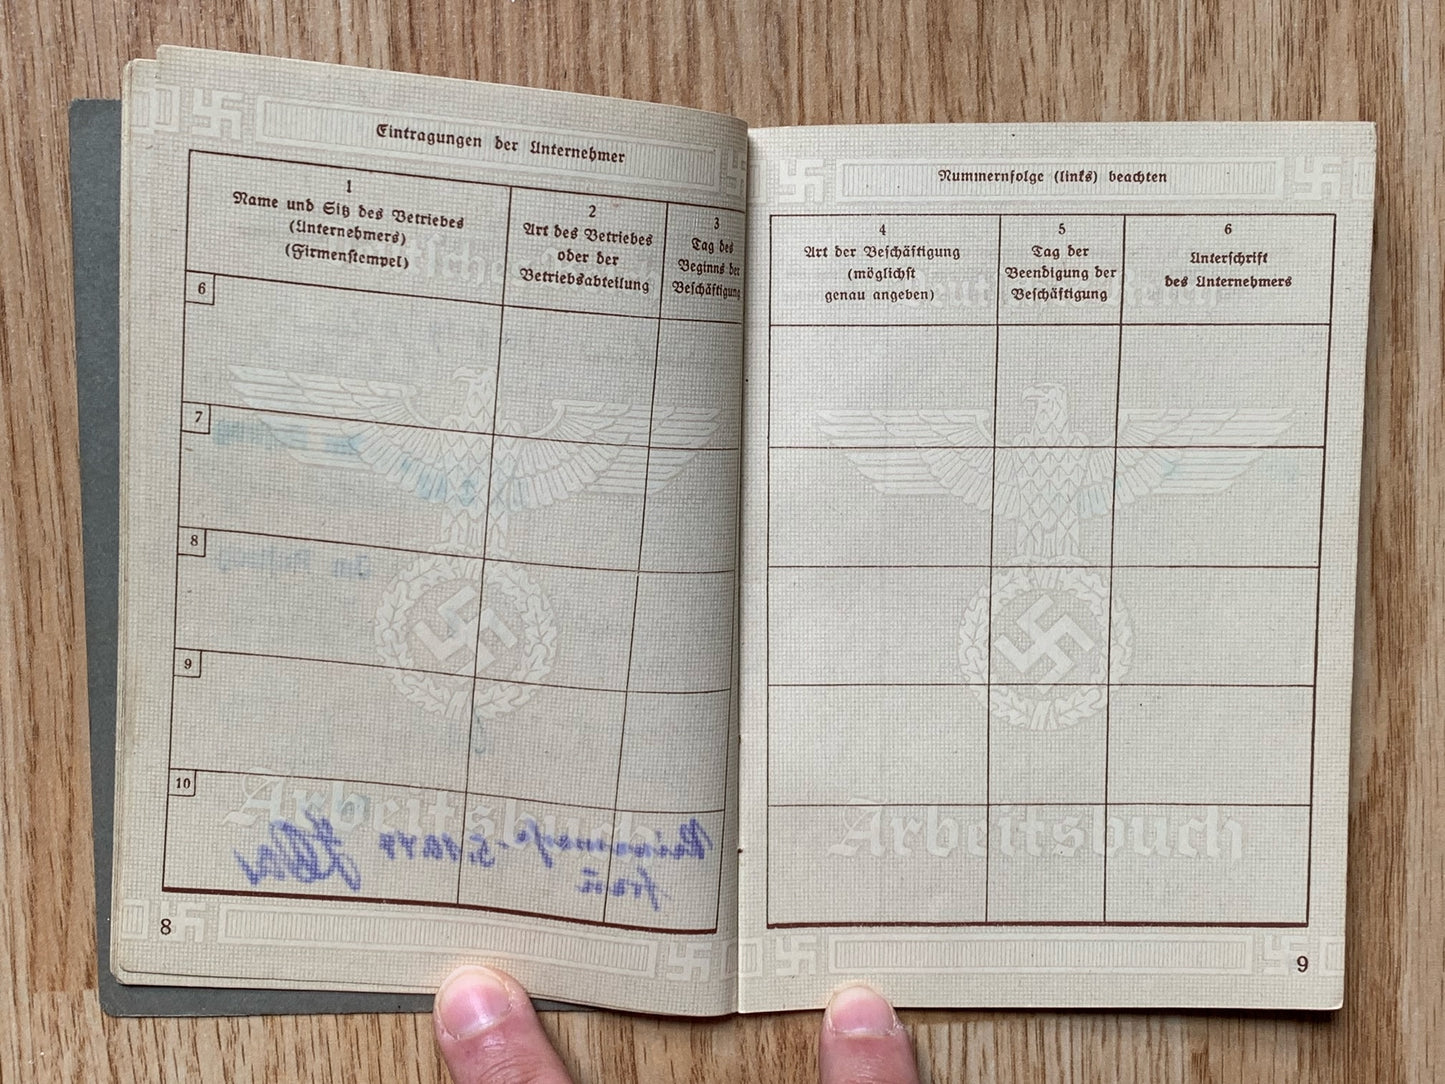 Eintragungen der Unternehmer
1
Name und Sitz des Betriebes
(Unternehmers)
(Firmenstempel)
2
Art des Betriebes
oder der
Betriebsabteilung
3
Tag des
Beginns der
Beschäftigung
6
7
8
9
10
Arbeitsbuch
8
Nummernfolge (links) beachten
4
Art der Beschäftigung
(möglichst
genau angeben)
5
Tag der
Beendigung der
Beschäftigung
6
Unterschrift
des Unternehmers
Arbeitsbuch
9